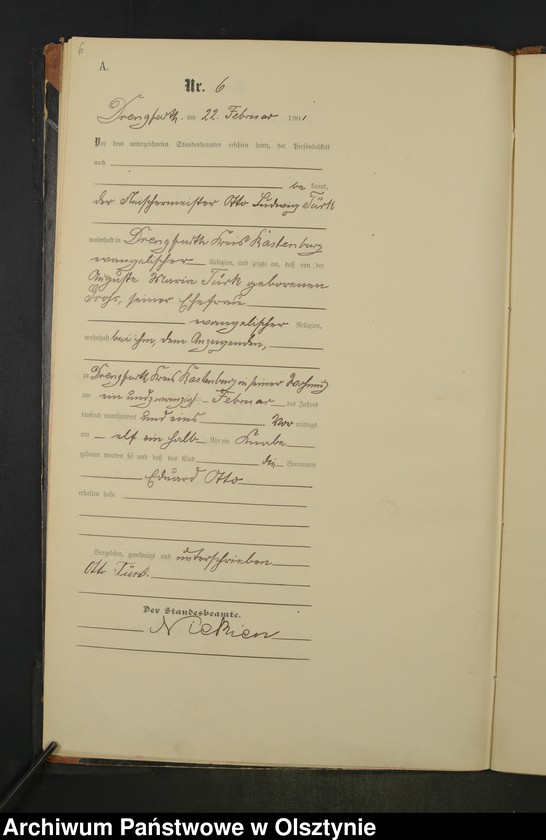 6
A.
Nr. 6
Drengfurth am 22. Februar 1901.
Vor dem unterzeichneten Standesbeamten erschien heute, der Persönlichkeit
nach
be kannt,
der Fleischermeister Otto Ludwig Türk
wohnhaft in Drengfurth Kreis Rastenburg
evangelischer Religion, und zeigte an, daß von der
Auguste Maria Türk geborenen
Groß, seiner Ehefrau
evangelischer Religion,
wohnhaft bei ihm, dem Anzeigenden,
zu Drengfurth, Kreis Rastenburg in seiner Wohnung
am ein und zwanzigsten Februar des Jahres
tausend neunhundert und eins Vor mittags
um elf ein halb Uhr ein Knabe
geboren worden sei und daß das Kind die Vornamen
Eduard Otto
erhalten habe
Vorgelesen, genehmigt und unterschrieben
Otto Türk.
Der Standesbeamte.
Archiwum Państwowe w Olsztynie